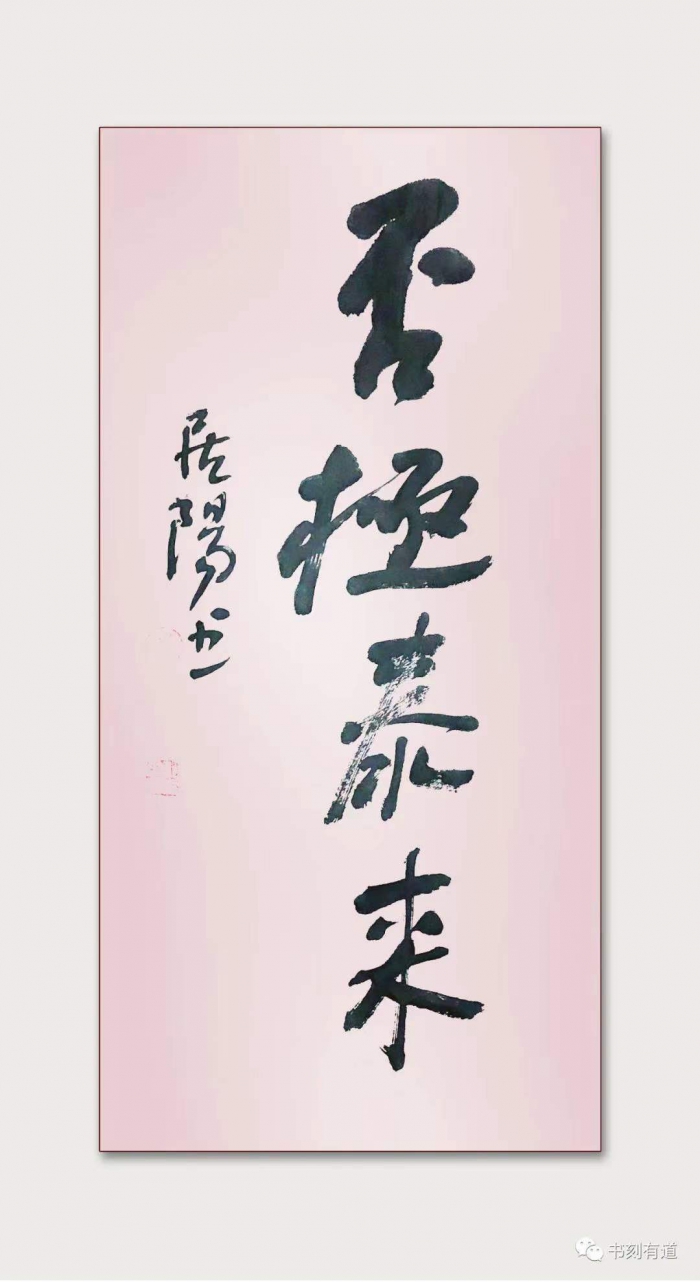 否極泰来
居陽书
书刻有道